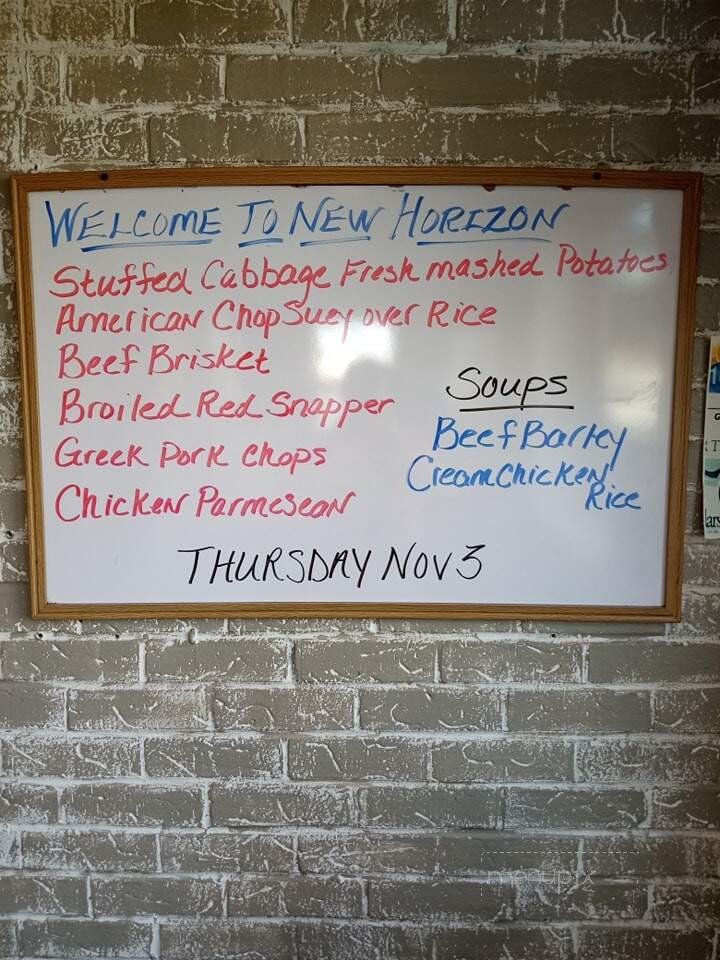 WELCOME TO NEW HORIZON
Stuffed Cabbage Fresh mashed Potatoes
American Chop Suey over Rice
Beef Brisket
Broiled Red Snapper
Greek Pork Chops
Chicken Parmesean
Soups
Beef Barley
Cream Chicken
Rice
THURSDAY NOV 3
menupix